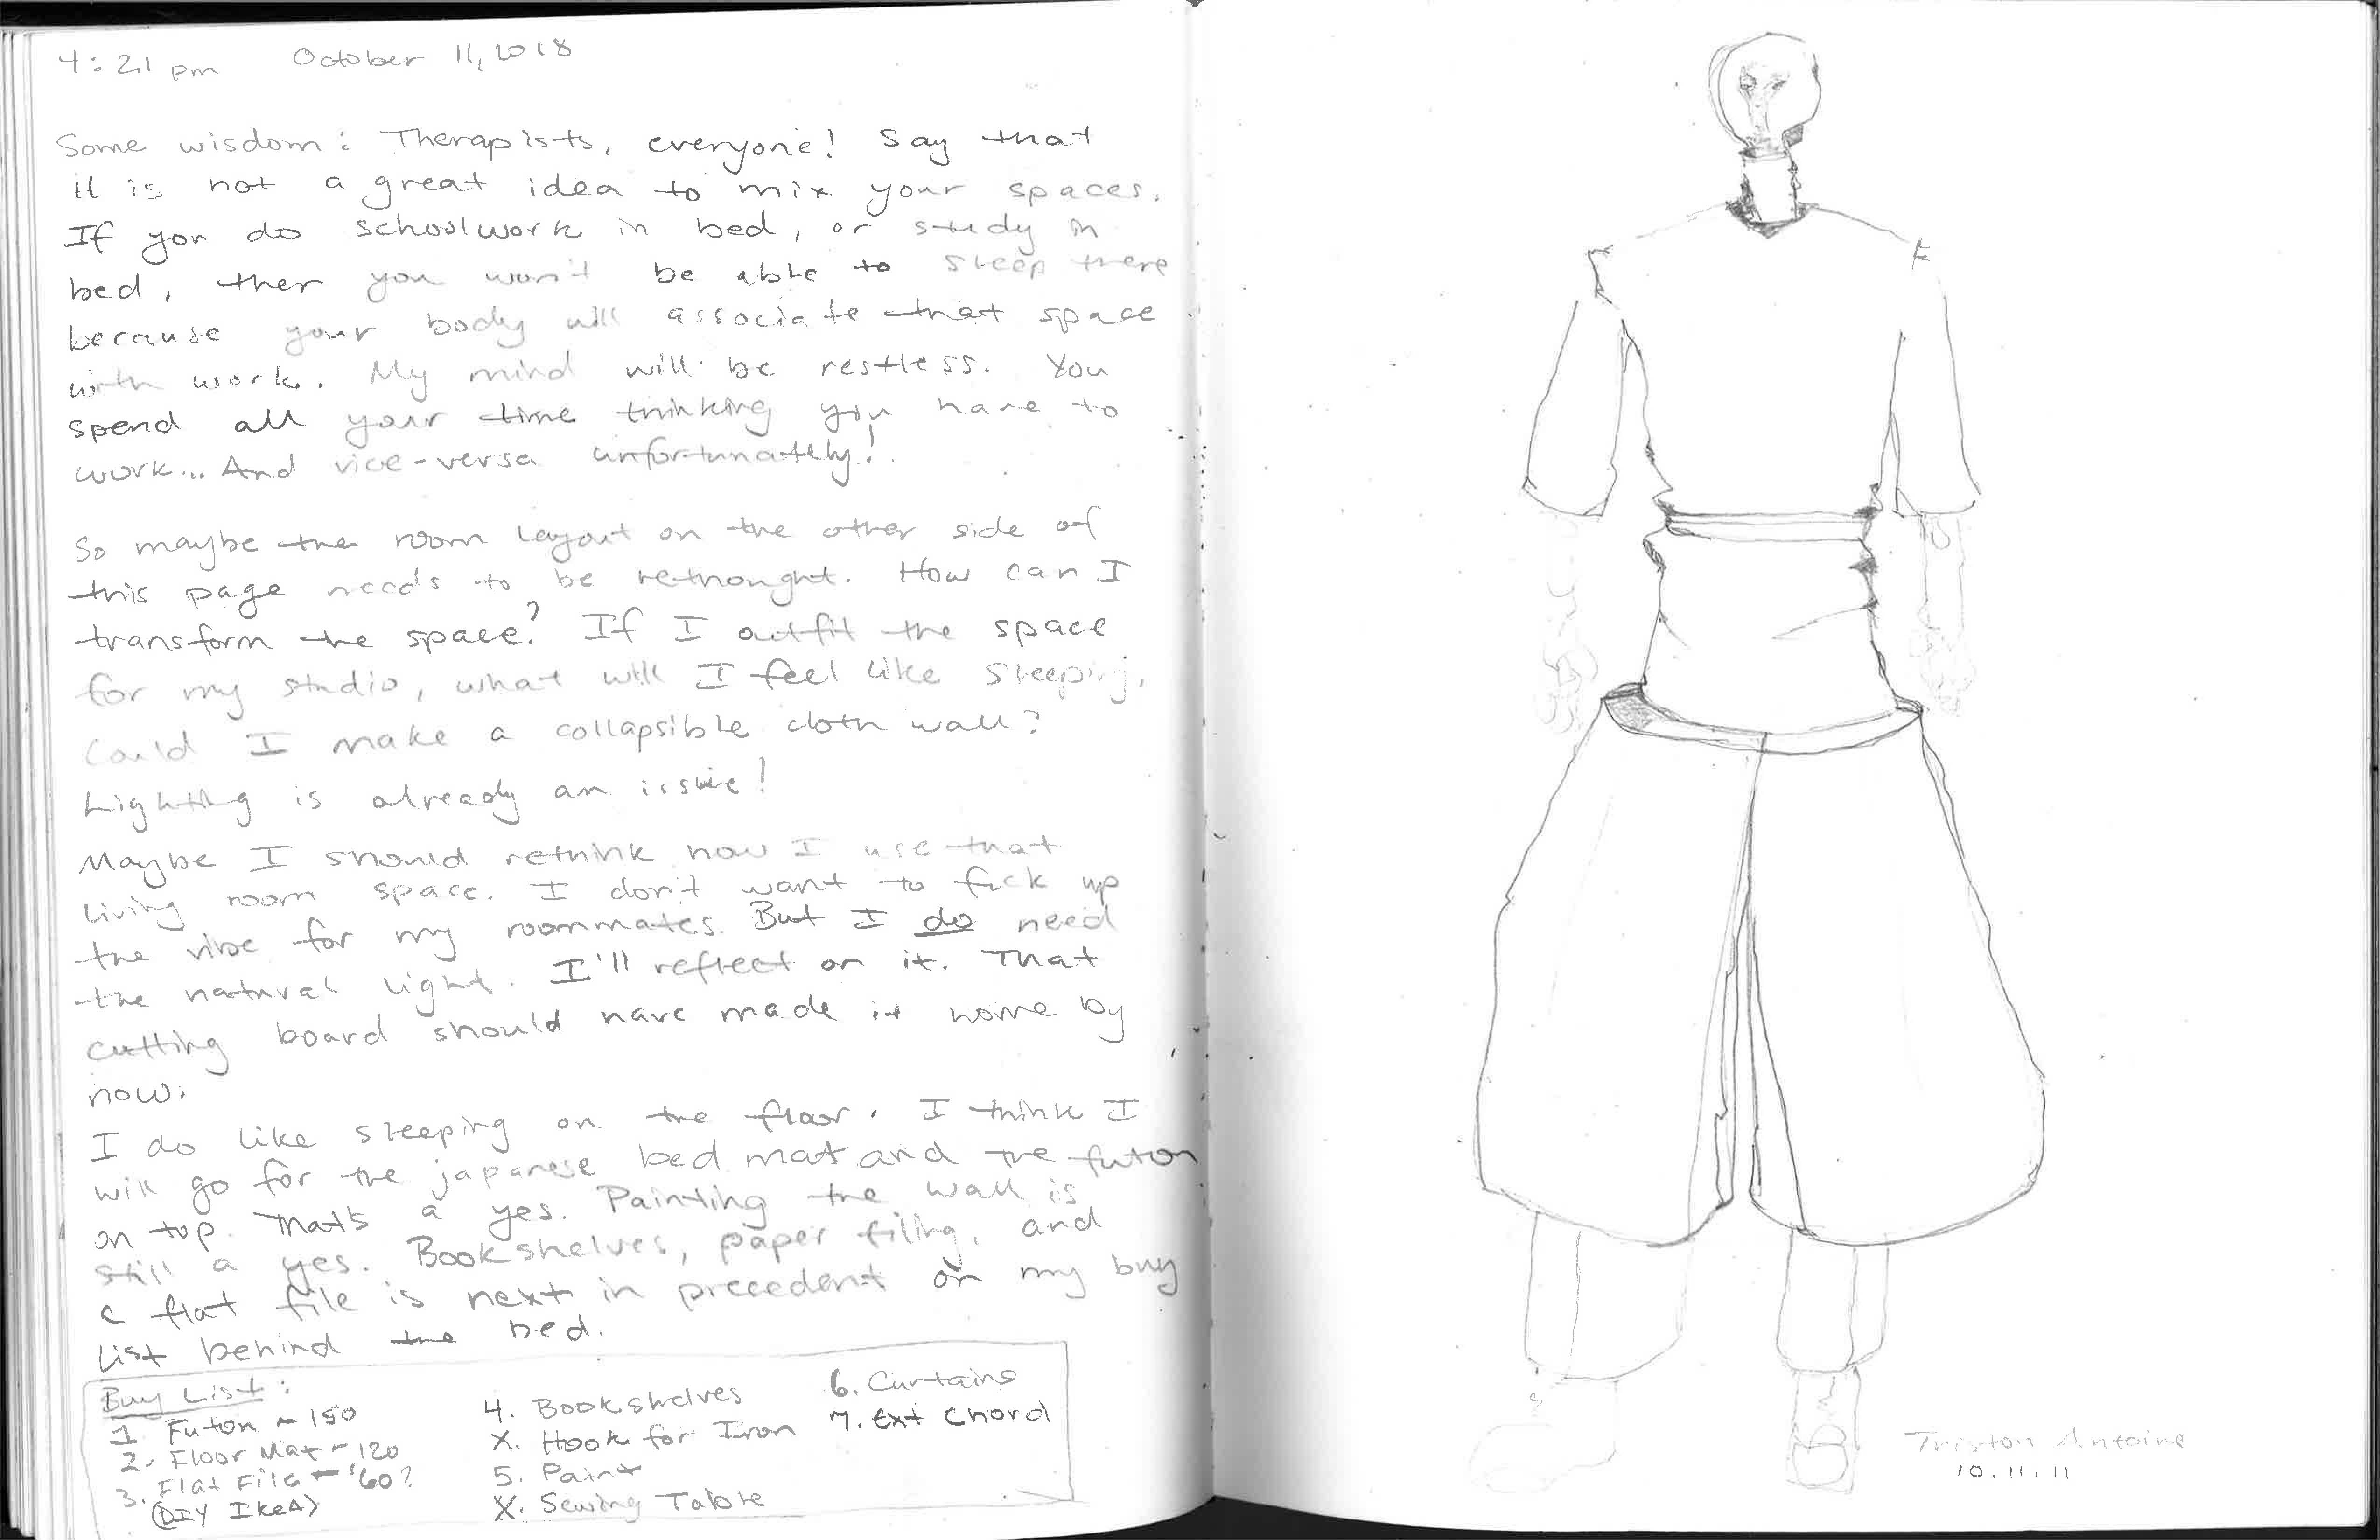 4:21 pm October 11, 2018
Some wisdom: Therapists, everyone! Say that
it is not a great idea to mix your spaces.
If you do schoolwork in bed, or study in
bed, then you won't be able to sleep there
because your body will associate that space
with work.. My mind will be restless. You
spend all your time thinking you have to
work... And vice-versa unfortunately!
So maybe the room layout on the other side of
this page needs to be rethought. How can I
transform the space? If I outfit the space
for my studio, what will I feel like sleeping.
Could I make a collapsible cloth wall?
Lighting is already an issue!
Maybe I should rethink how I use that
living room space. I don't want to fuck up
the vibe for my roommates. But I do need
the natural light. I'll reflect on it. That
cutting board should have made it home by
now.
I do like sleeping on the floor. I think I
will go for the japanese bed mat and the futon
on top. That's a yes. Painting the wall is
still a yes. Bookshelves, paper filing, and
a flat file is next in precedent on my buy
list behind the bed.
Buy List:
1. Futon ~ 150
2. Floor Mat - 120
3. Flat File - $60?
(DIY IKEA)
4. Bookshelves
X. Hook for Iron
5. Paint
X. Sewing Table
6. Curtains
7. Ext Chord
Triston Antoine
10.11.11